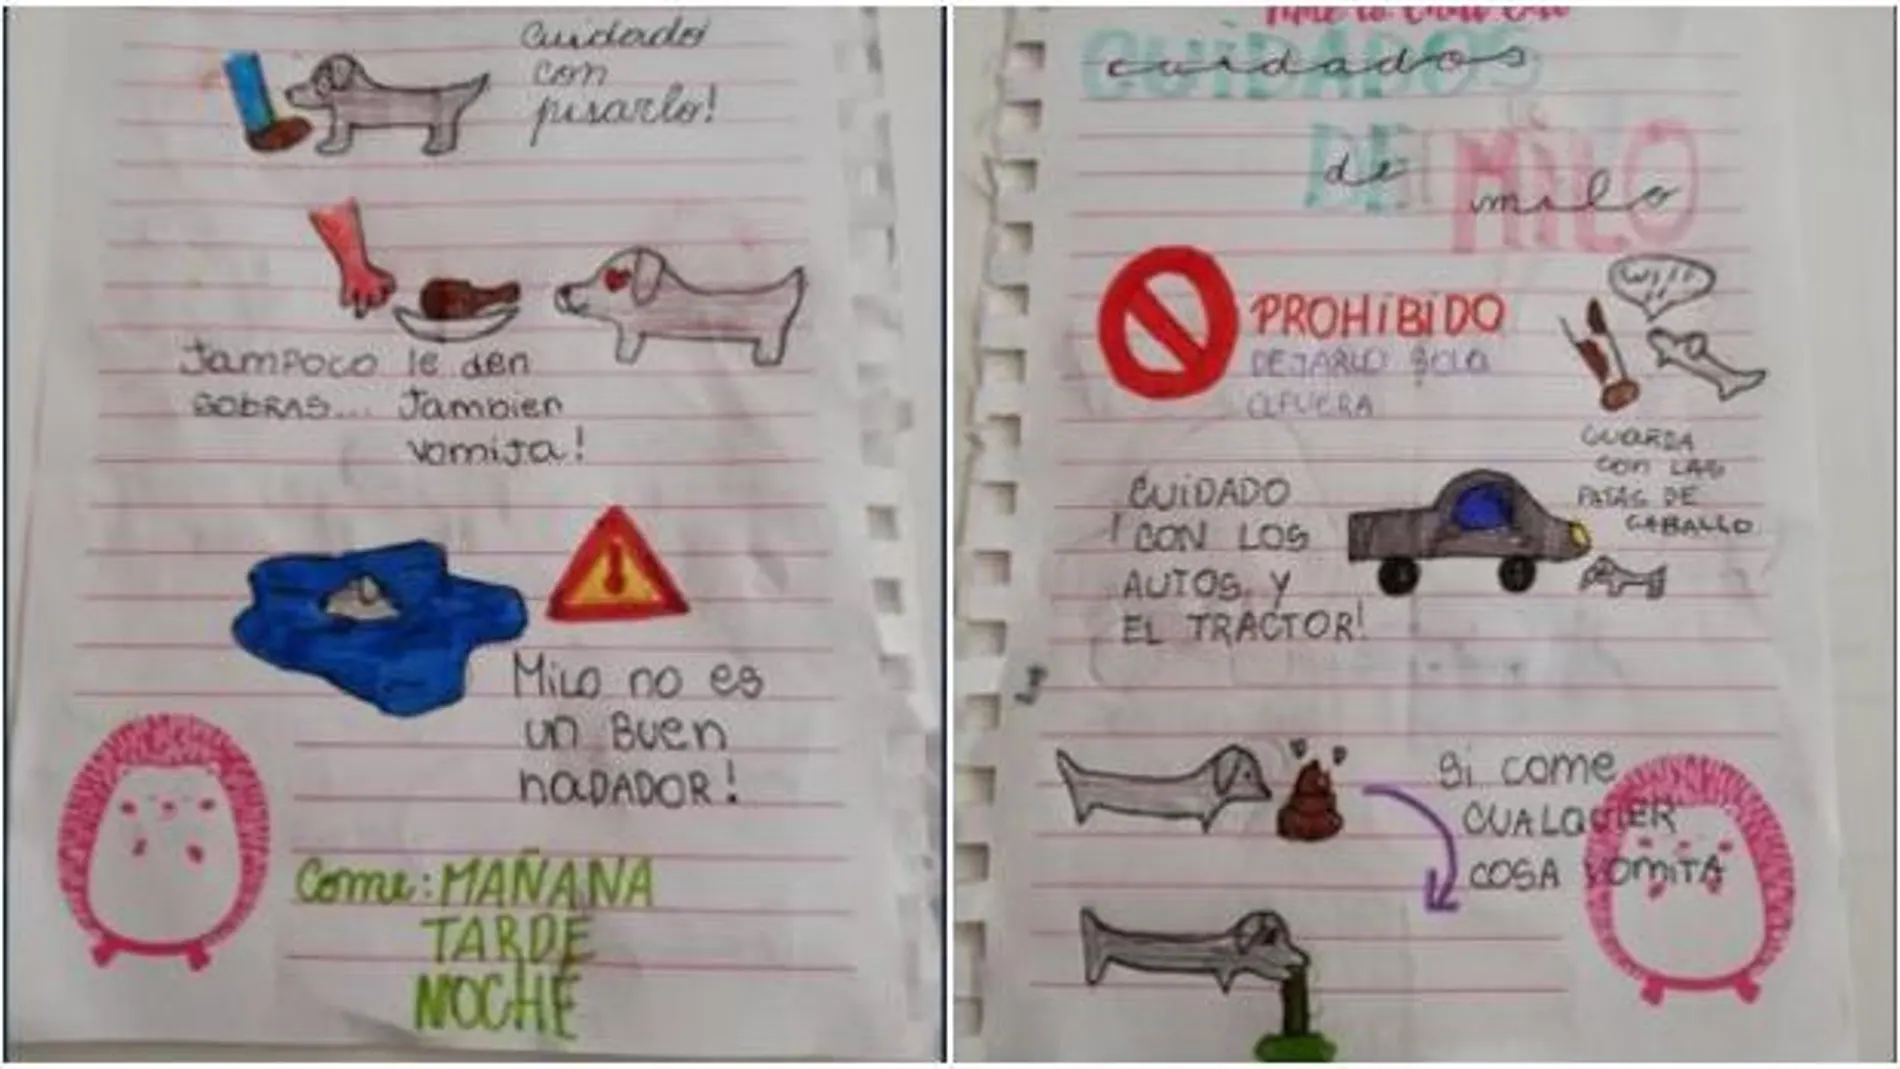 Cuidado
con
pisarlo!
Tampoco le den
sobras... Tambien
vomita!
Milo no es
un buen
nadador!
Come: MAÑANA
TARDE
NOCHE
CUiDADOS
cuidados
DE MiLO
de milo
PROHiBiDO
DEJARLO SOLO
AFUERA
GUARDA
CON LAS
PATAS DE
CABALLO
CUiDADO
! CON LOS
AUTOS, Y
EL TRACTOR!
Si come
CUALQUIER
COSA VOMITA